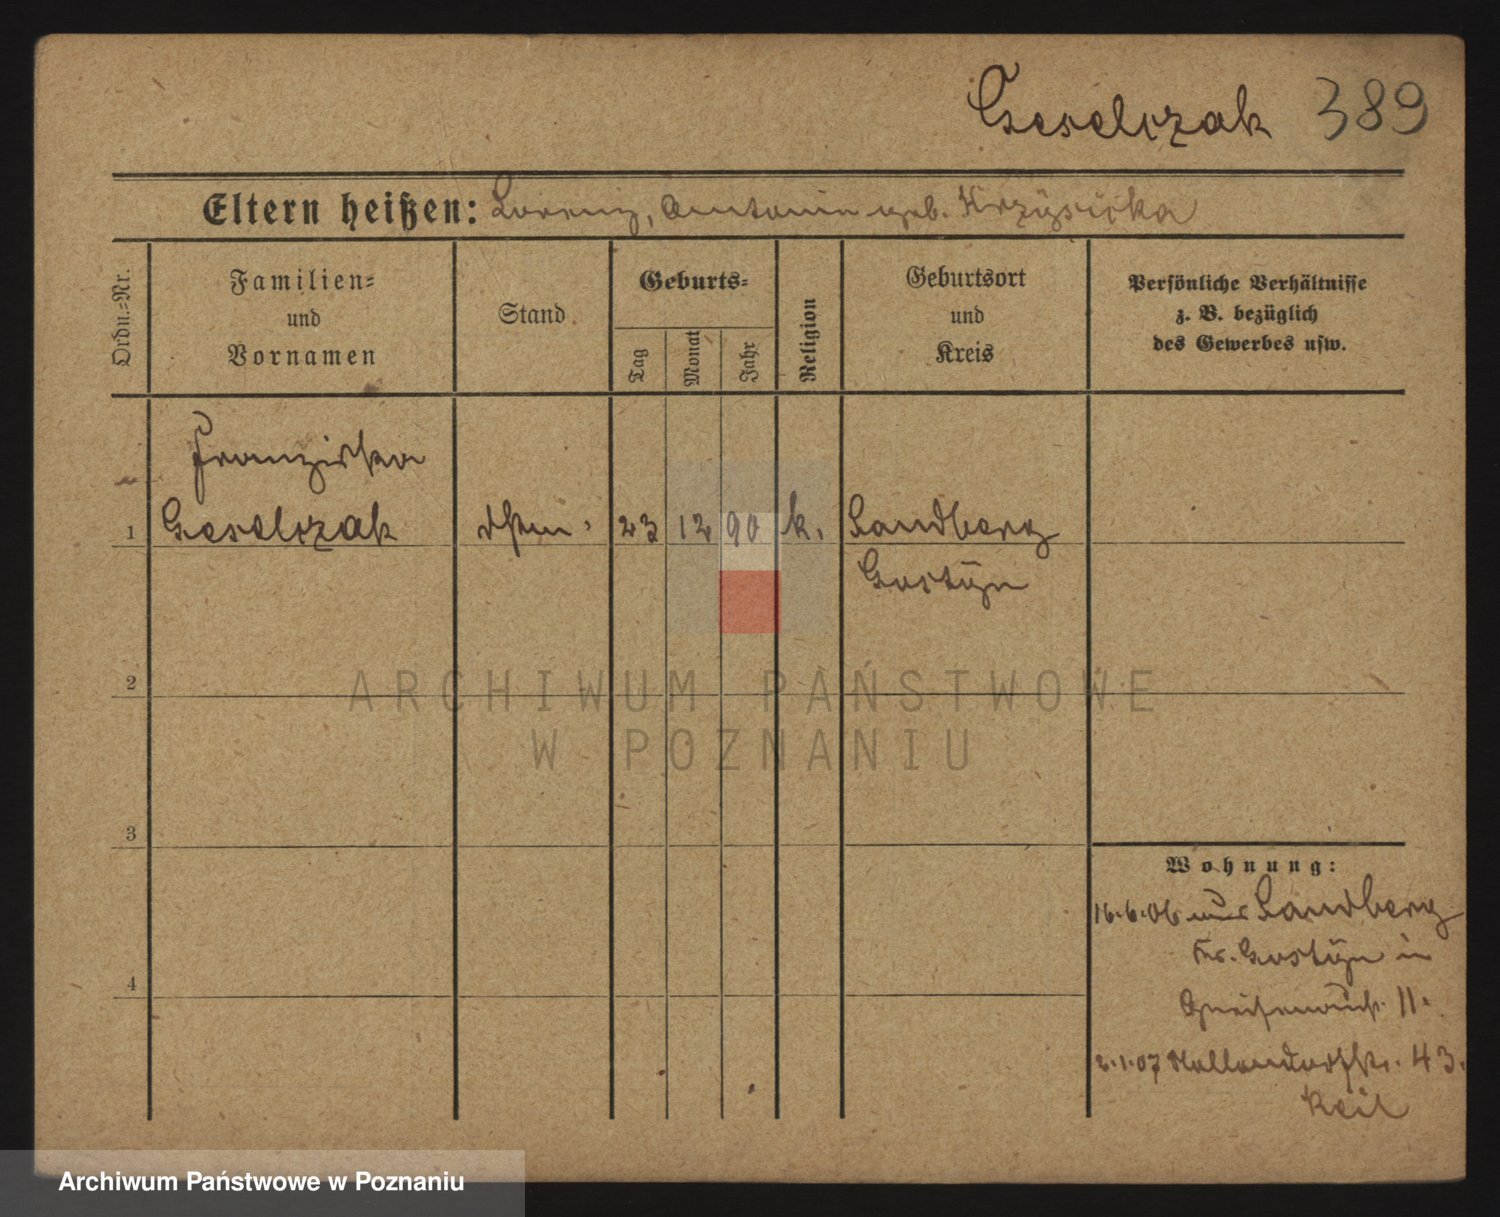 Geselczak 389
Eltern heißen: Lorenz, Antonin geb. Krzyscicka
Ordn.-Nr.
Familien-
und
Vornamen
Stand
Geburts-
Tag
Monat
Jahr
Religion
Geburtsort
und
Kreis
Persönliche Verhältnisse
z. B. bezüglich
des Gewerbes usw.
Franziska
1 Geselczak 23 12 90 k. Sandberg
Gostÿn
2
3
4
Wohnung:
16.6.06 aus Sandberg
Kr. Gostÿn in
Gneisenaustr. 11.
2.1.07 43.
Keil
ARCHIWUM PAŃSTWOWE
W POZNANIU
Archiwum Państwowe w Poznaniu